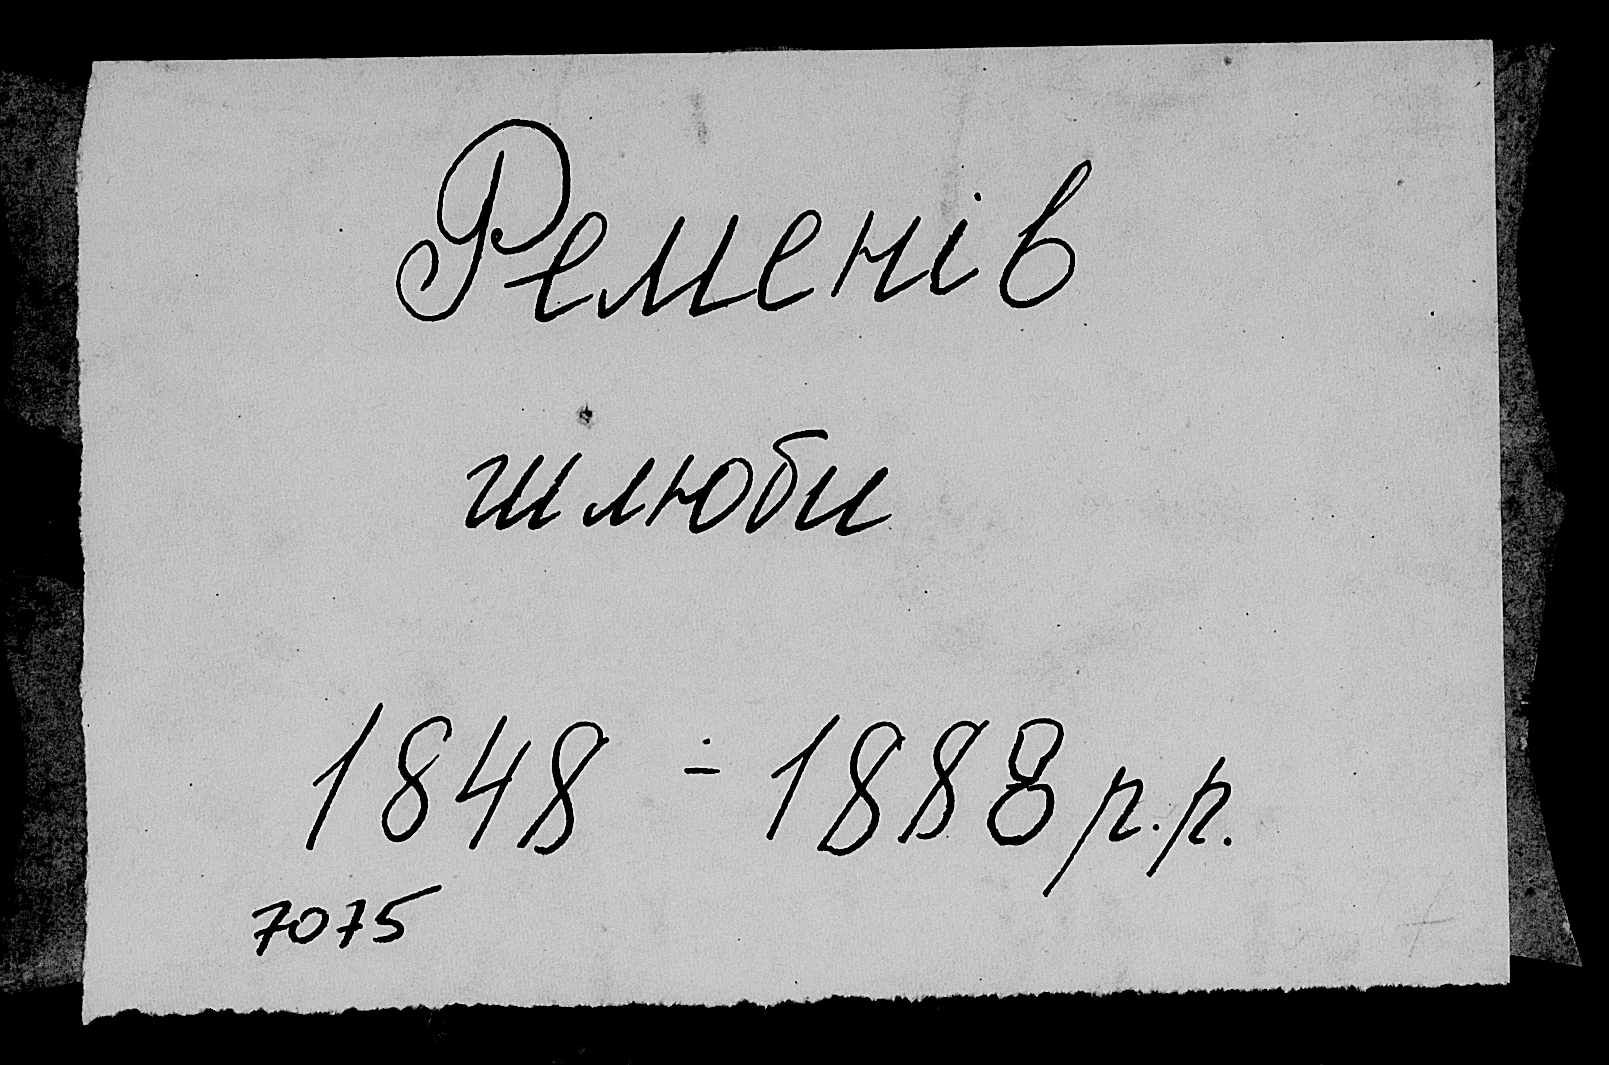 Ременів
шлюби
1848 - 1888 р.р.
7075